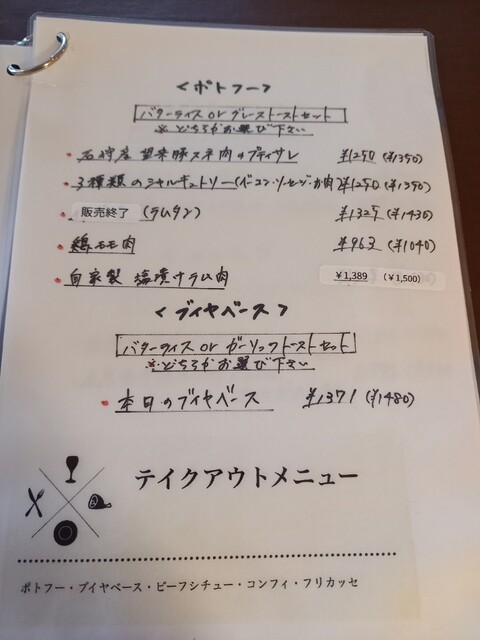 ＜ポトフー＞
バターライス or グレーストーストセット
※どちらかお選び下さい
石狩産 望来豚スネ肉のプティサレ ¥1250 (¥1350)
3種類のシャルキュトリー(ベーコン・ソーセージ・力肉) ¥1250 (¥1350)
販売終了 (ラムタン) ¥1325 (¥1430)
鶏モモ肉 ¥963 (¥1040)
自家製 塩漬けラム肉 ¥1,389 (¥1,500)
＜ブイヤベース＞
バターライス or ガーリックトーストセット
※どちらかお選び下さい
本日のブイヤベース ¥1371 (¥1480)
テイクアウトメニュー
ポトフー・ブイヤベース・ビーフシチュー・コンフィ・フリカッセ